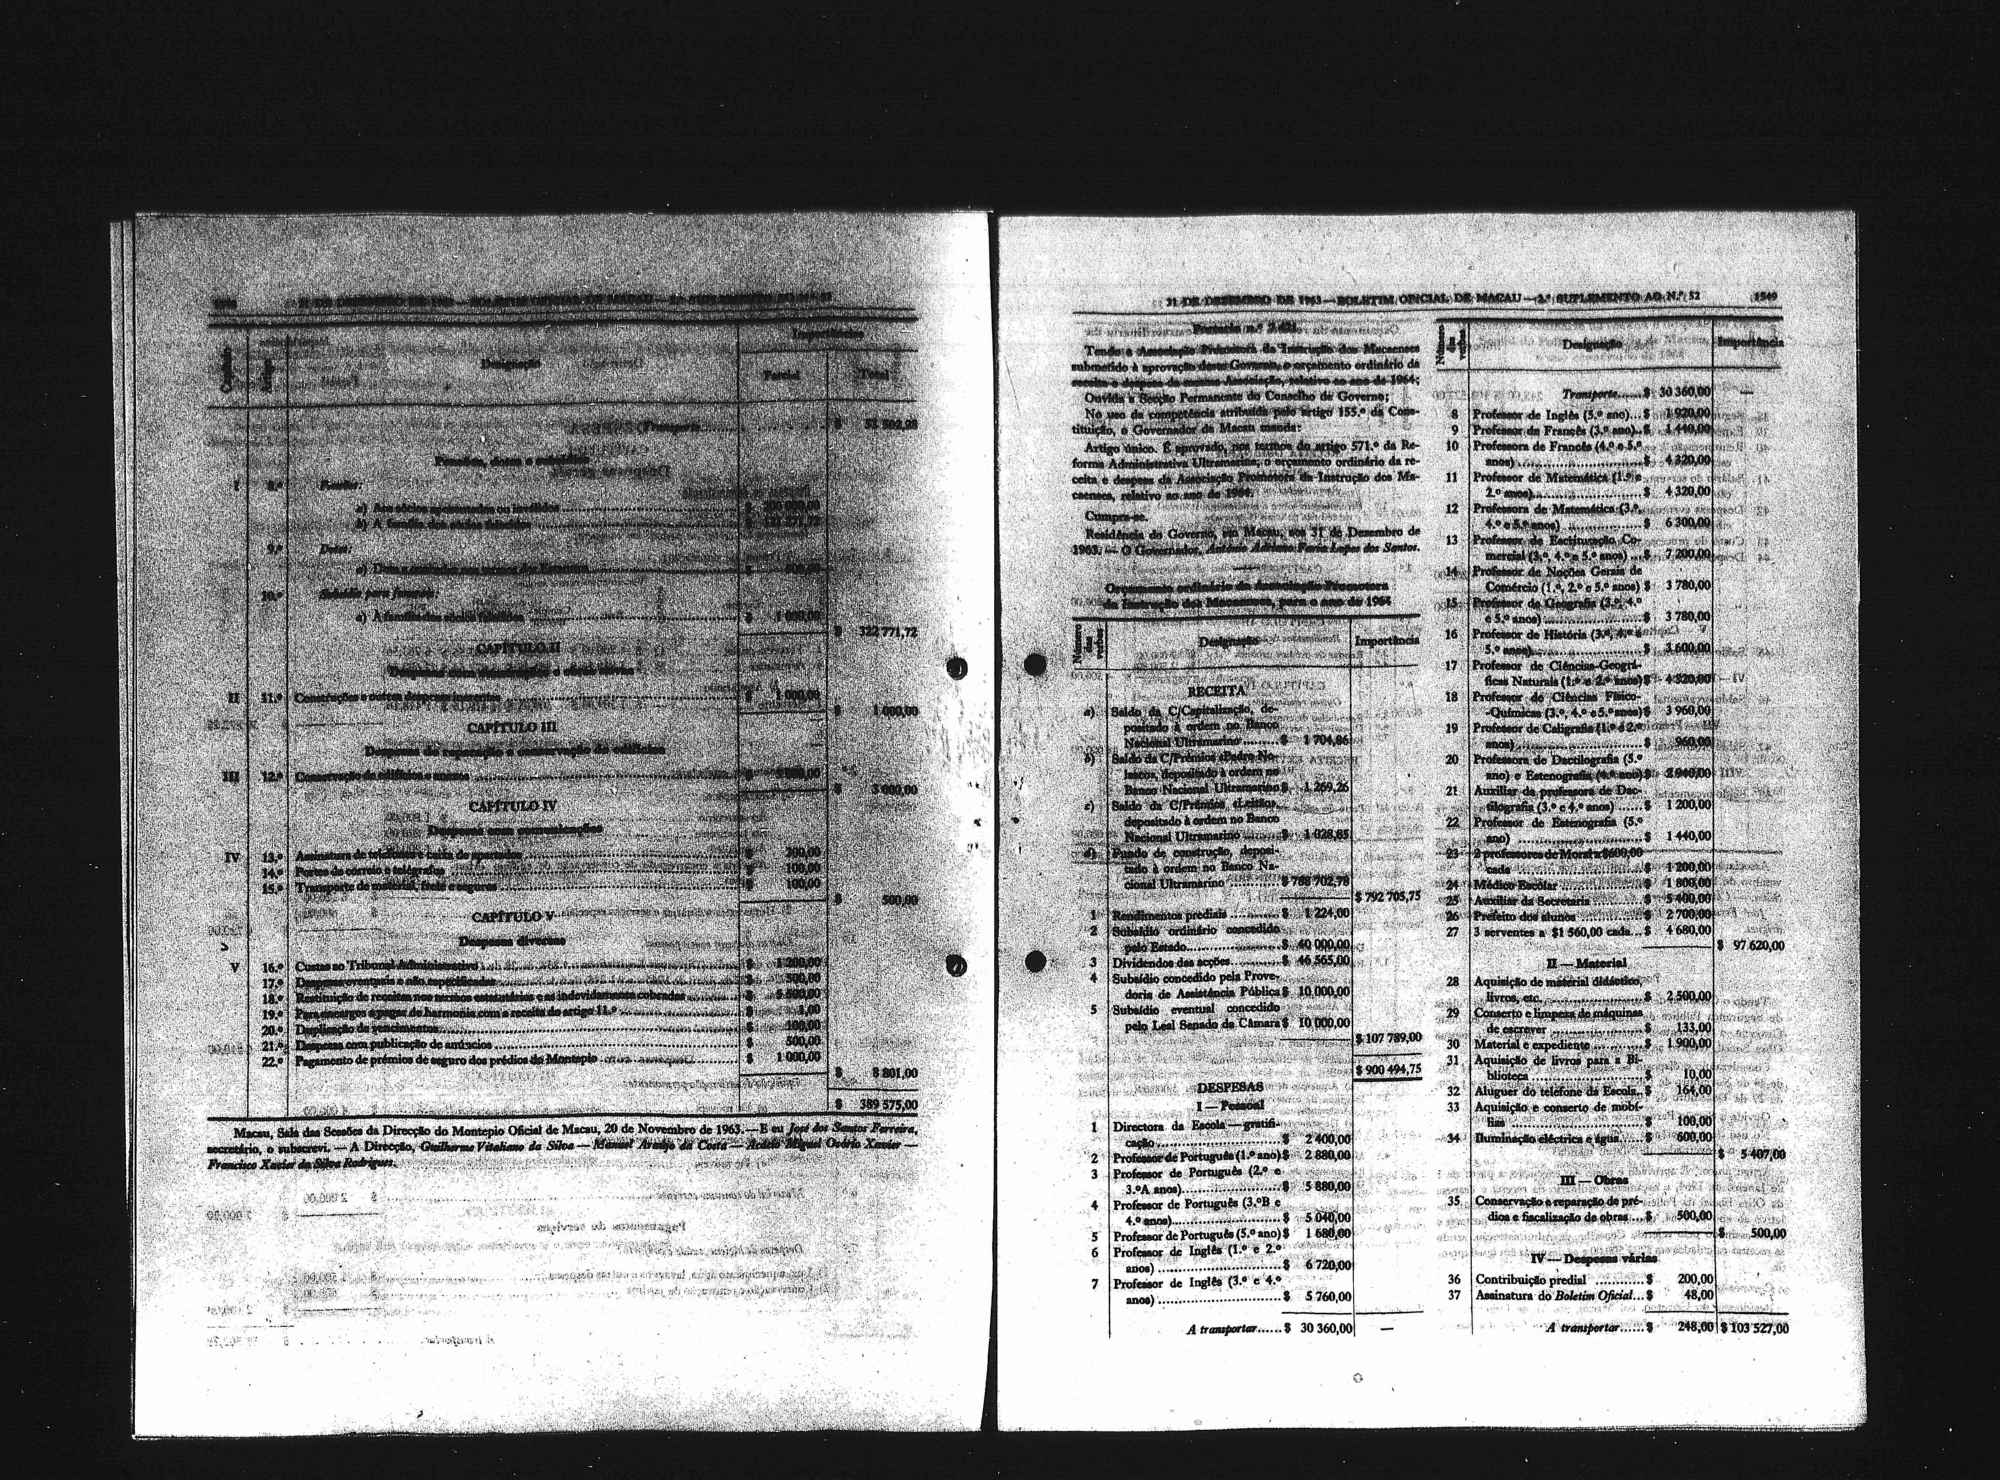 31 DE DEZEMBRO DE 1963 — BOLETIM OFICIAL DE MACAU — 2.º SUPLEMENTO AO N.º 52
Capítulo
Artigo
Designação
Importâncias
Parcial
Total
Transporte $
Pensões, dotes e subsídios
I 8.º Pensões:
a) Aos sócios aposentados ou inválidos $
b) À família dos sócios falecidos $
9.º Dotes:
10.º Subsídio para funerais:
a) À família dos sócios falecidos $ 1 000,00
$ 322 771,72
CAPÍTULO II
II 11.º Construções e outras despesas inerentes $ 1 000,00
$ 1 000,00
CAPÍTULO III
Despesas de reparação e conservação de edifícios
III 12.º Conservação de edifícios e anexos $
$ 3 000,00
CAPÍTULO IV
Despesas com comunicações
IV 13.º Assinatura de telefones e caixa de apartados $ 300,00
14.º Portes de correio e telégrafos $ 100,00
15.º Transporte de material, frete e seguros $ 100,00
$ 500,00
CAPÍTULO V
Despesas diversas
V 16.º Custas ao Tribunal Administrativo $ 1 200,00
17.º Despesas eventuais e não especificadas $ 500,00
18.º Restituição de receitas nos termos estatutários e as indevidamente cobradas $ 5 500,00
19.º Para encargos a pagar de harmonia com a receita do artigo 11.º $ 1,00
20.º Duplicação de vencimentos $ 100,00
21.º Despesa com publicação de anúncios $ 500,00
22.º Pagamento de prémios de seguro dos prédios do Montepio $ 1 000,00
$ 8 801,00
$ 389 575,00
Macau, Sala das Sessões da Direcção do Montepio Oficial de Macau, 20 de Novembro de 1963. — E eu José dos Santos Ferreira,
secretário, o subscrevi. — A Direcção, Guilherme Vitaliano da Silva — Manuel Araújo da Costa — Acácio Miguel Osório Xavier —
Francisco Xavier da Silva Rodrigues.
31 DE DEZEMBRO DE 1963 — BOLETIM OFICIAL DE MACAU — 2.º SUPLEMENTO AO N.º 52 1549
Portaria n.º
Tendo a Associação Promotora da Instrução dos Macaenses
submetido à aprovação deste Governo, o orçamento ordinário da
receita e despesa da mesma Associação, relativo ao ano de 1964;
Ouvida a Secção Permanente do Conselho de Governo;
No uso da competência atribuída pelo artigo 155.º da Cons-
tituição, o Governador de Macau manda:
Artigo único. É aprovado, nos termos do artigo 571.º da Re-
forma Administrativa Ultramarina, o orçamento ordinário da re-
ceita e despesa da Associação Promotora da Instrução dos Ma-
caenses, relativo ao ano de 1964.
Cumpra-se.
Residência do Governo, em Macau, aos 31 de Dezembro de
1963. — O Governador, António Adriano Faria Lopes dos Santos.
Orçamento ordinário da Associação Promotora
da Instrução dos Macaenses, para o ano de 1964
Número das verbas
Designação
Importância
RECEITA
a) Saldo da C/Capitalização, de-
positado à ordem no Banco
Nacional Ultramarino $ 1 704,86
b) Saldo da C/Prémios «Pedro No-
lasco», depositado à ordem no
Banco Nacional Ultramarino $ 1 269,26
c) Saldo da C/Prémios «Leitão»,
depositado à ordem no Banco
Nacional Ultramarino $ 1 028,85
d) Fundo de construção, deposi-
tado à ordem no Banco Na-
cional Ultramarino $ 788 702,78
$ 792 705,75
1 Rendimentos prediais $ 1 224,00
2 Subsídio ordinário concedido
pelo Estado $ 40 000,00
3 Dividendos das acções $ 46 565,00
4 Subsídio concedido pela Prove-
doria de Assistência Pública $ 10 000,00
5 Subsídio eventual concedido
pelo Leal Senado da Câmara $ 10 000,00
$ 107 789,00
$ 900 494,75
DESPESAS
I — Pessoal
1 Directora da Escola — gratifi-
cação $ 2 400,00
2 Professor de Português (1.º ano) $ 2 880,00
3 Professor de Português (2.º e
3.ºA anos) $ 5 880,00
4 Professor de Português (3.ºB e
4.º anos) $ 5 040,00
5 Professor de Português (5.º ano) $ 1 680,00
6 Professor de Inglês (1.º e 2.º
anos) $ 6 720,00
7 Professor de Inglês (3.º e 4.º
anos) $ 5 760,00
A transportar...... $ 30 360,00 —
Número das verbas
Designação
Importância
Transporte...... $ 30 360,00 —
8 Professor de Inglês (5.º ano)... $ 1 920,00
9 Professor de Francês (3.º ano).. $ 1 440,00
10 Professora de Francês (4.º e 5.º
anos) $ 4 320,00
11 Professor de Matemática (1.º e
2.º anos) $ 4 320,00
12 Professora de Matemática (3.º,
4.º e 5.º anos) $ 6 300,00
13 Professor de Escrituração Co-
mercial (3.º, 4.º e 5.º anos) ... $ 7 200,00
14 Professor de Noções Gerais de
Comércio (1.º, 2.º e 5.º anos) $ 3 780,00
15 Professor de Geografia (3.º, 4.º
e 5.º anos) $ 3 780,00
16 Professor de História (3.º, 4.º e
5.º anos) $ 3 600,00
17 Professor de Ciências Geográ-
ficas Naturais (1.º e 2.º anos) $ 4 320,00
18 Professor de Ciências Físico-
-Químicas (3.º, 4.º e 5.º anos) $ 3 960,00
19 Professor de Caligrafia (1.º e 2.º
anos) $ 960,00
20 Professora de Dactilografia (5.º
ano) e Estenografia (4.º ano) $ 2 940,00
21 Auxiliar da professora de Dac-
tilografia (3.º e 4.º anos) $ 1 200,00
22 Professor de Estenografia (5.º
ano) $ 1 440,00
23 2 professores de Moral a $600,00
cada $ 1 200,00
24 Médico Escolar $ 1 800,00
25 Auxiliar da Secretaria $ 5 400,00
26 Prefeito dos alunos $ 2 700,00
27 3 serventes a $1 560,00 cada... $ 4 680,00
$ 97 620,00
II — Material
28 Aquisição de material didáctico,
livros, etc. $ 2 500,00
29 Conserto e limpeza de máquinas
de escrever $ 133,00
30 Material e expediente $ 1 900,00
31 Aquisição de livros para a Bi-
blioteca $ 10,00
32 Aluguer do telefone da Escola.. $ 164,00
33 Aquisição e conserto de mobí-
lias $ 100,00
34 Iluminação eléctrica e água..... $ 600,00
$ 5 407,00
III — Obras
35 Conservação e reparação de pré-
dios e fiscalização de obras ... $ 500,00
$ 500,00
IV — Despesas várias
36 Contribuição predial $ 200,00
37 Assinatura do Boletim Oficial... $ 48,00
A transportar...... $ 248,00 $ 103 527,00